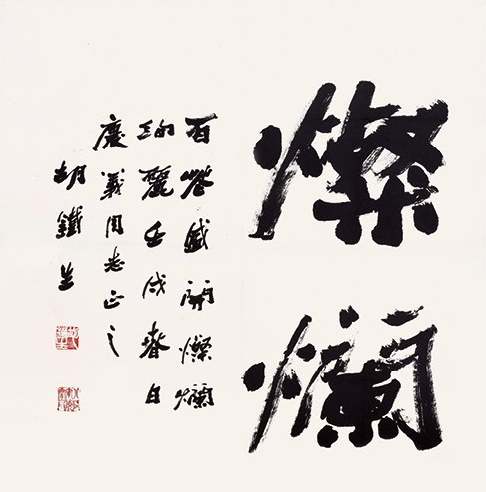 燦
爛
百花盛開燦爛
絢麗壬戌春日
慶義同志正之
胡鐵生